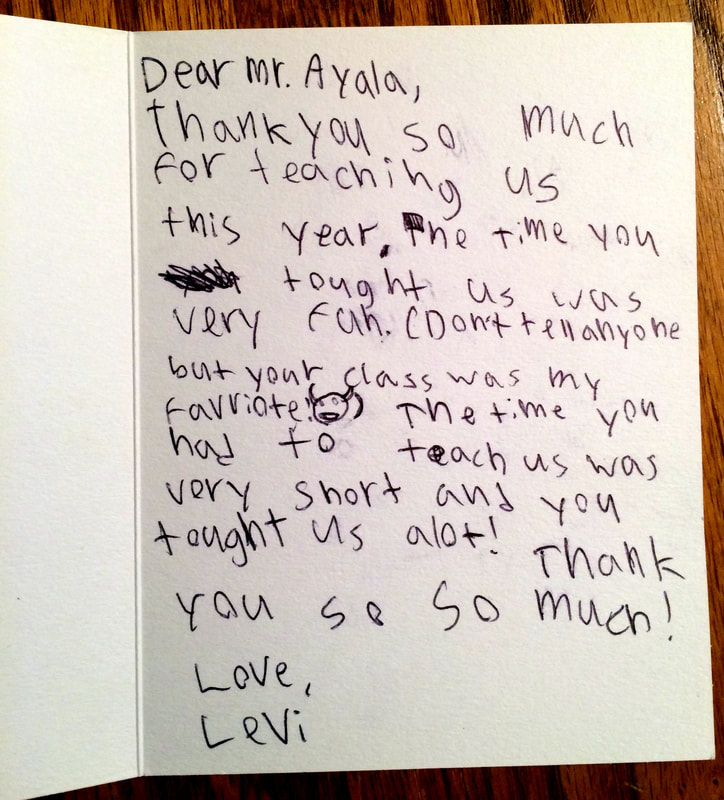 Dear Mr. Ayala,
thank you so much
for teaching us
this year. The time you
tought us was
very fun. (Don't tell anyone
but your class was my
favriote!) The time you
had to teach us was
very short and you
tought us alot! Thank
you so so much!
Love,
Levi